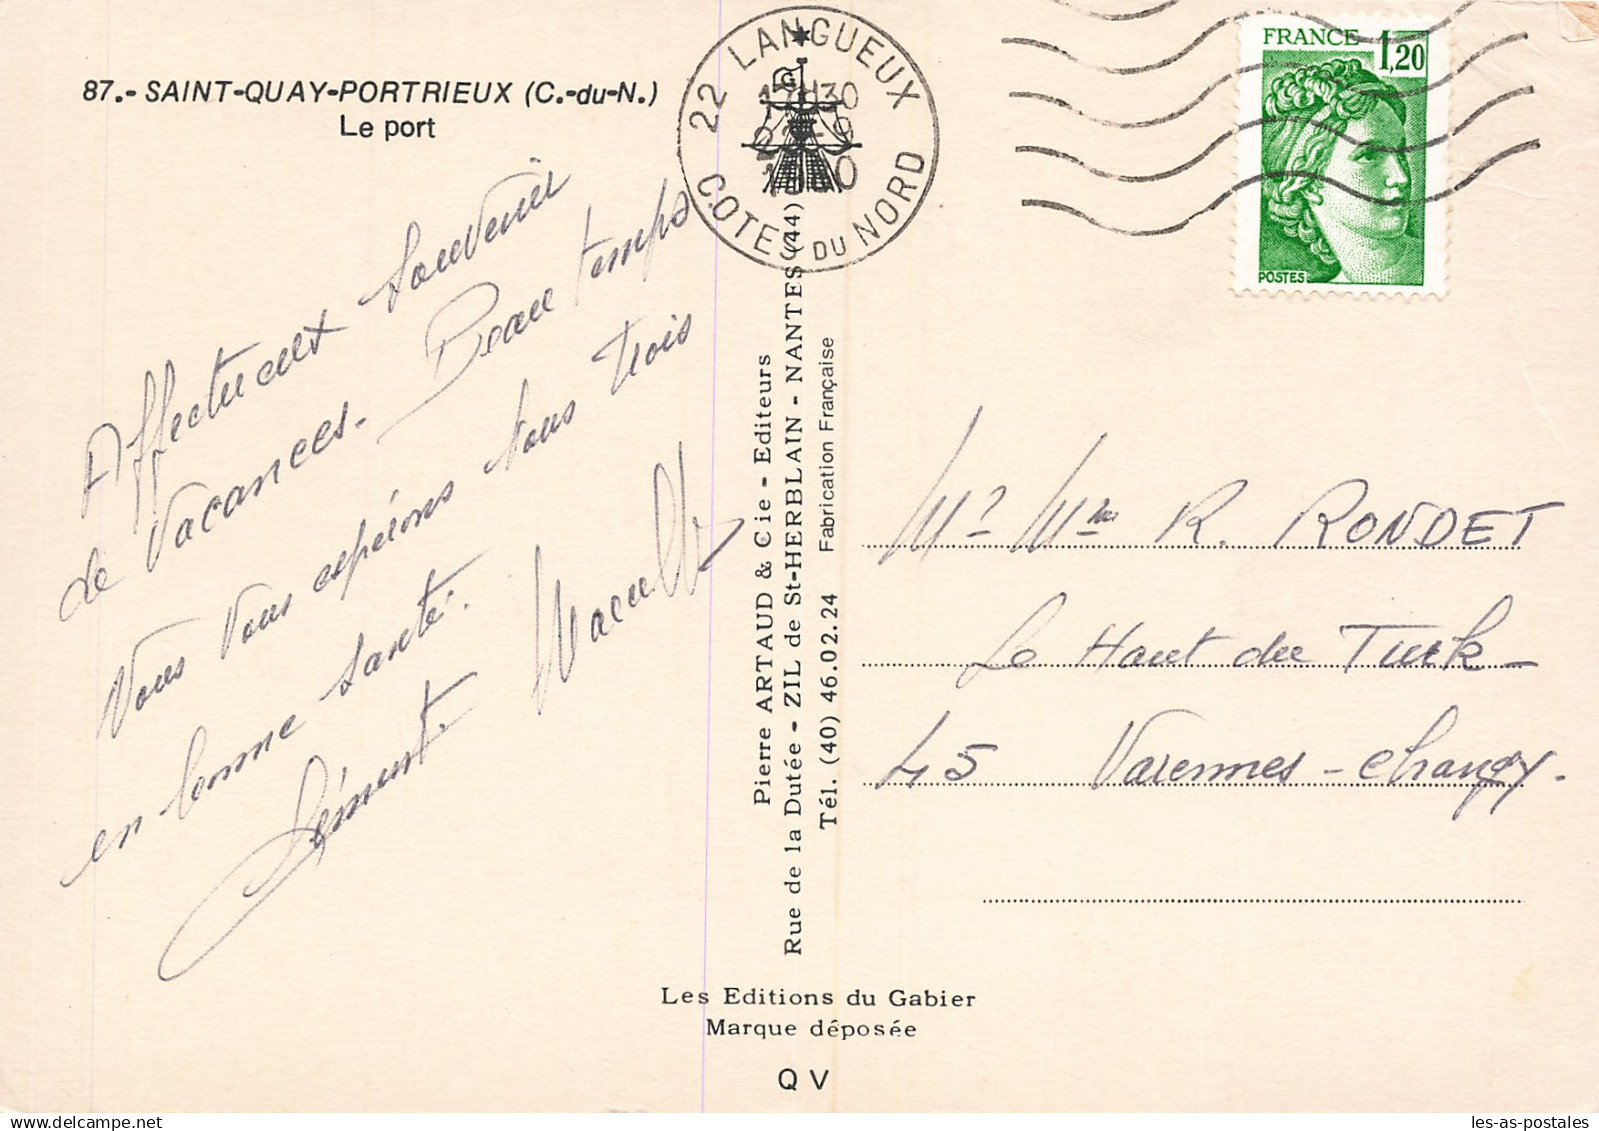 87.- SAINT-QUAY-PORTRIEUX (C.-du-N.)
Le port
22 LANGUEUX
COTES DU NORD
FRANCE 1,20
POSTES
Affectueux Souvenir
de Vacances. Beau temps
Nous Vous espérons tous trois
en bonne santé.
Marcelle
Pierre ARTAUD & Cie - Editeurs
Rue de la Dutée - ZIL de St-HERBLAIN - NANTES (44)
Tél. (40) 46.02.24 Fabrication Française
Mr Mme R. RONDET
Le Haut du Turk
45 Varennes-Changy.
Les Editions du Gabier
Marque déposée
QV
les-as-postales